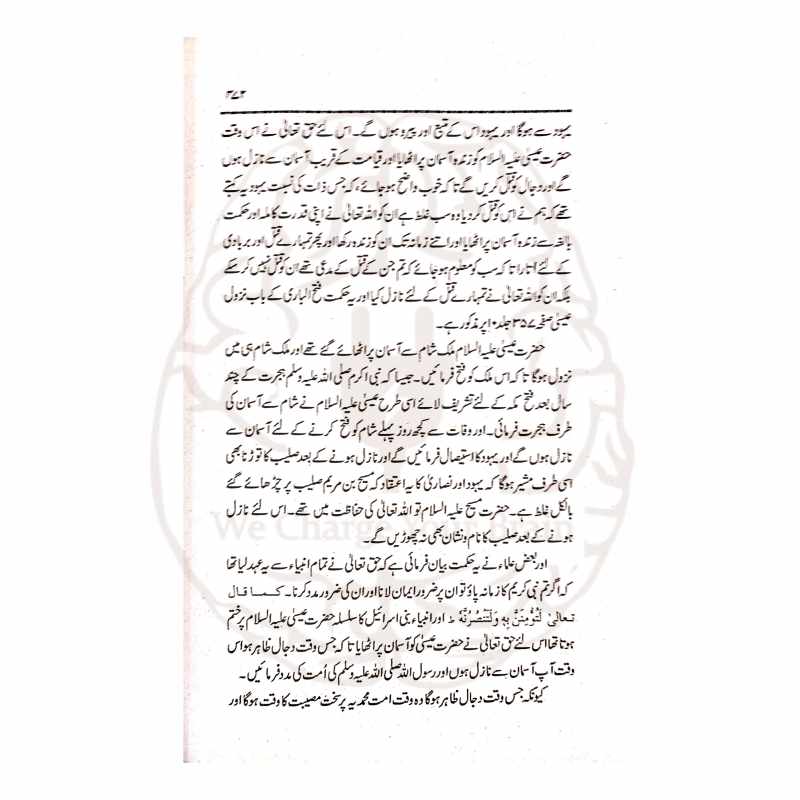 ۳۷۲
یہود سے ہوگا اور یہود اس کے متبع اور پیرو ہوں گے۔ اس لئے حق تعالیٰ نے اس وقت
حضرت عیسیٰ علیہ السلام کو زندہ آسمان پر اٹھایا اور قیامت کے قریب آسمان سے نازل ہوں
گے اور دجال کو قتل کریں گے تاکہ خوب واضح ہو جائے، کہ جس ذات کی نسبت یہود یہ کہتے
تھے کہ ہم نے اس کو قتل کر دیا وہ سب غلط ہے ان کو اللہ تعالیٰ نے اپنی قدرت کاملہ اور حکمت
بالغہ سے زندہ آسمان پر اٹھایا اور اتنے زمانہ تک ان کو زندہ رکھا اور پھر تمہارے قتل اور بربادی
کے لئے اتارا تاکہ سب کو معلوم ہو جائے کہ تم جن کے قتل کے مدعی تھے ان کو قتل نہیں کر سکے
بلکہ ان کو اللہ تعالیٰ نے تمہارے قتل کے لئے نازل کیا اور یہ حکمت فتح الباری کے باب نزول
عیسیٰ صفحہ ۳۵۷ جلد ۱۰ پر مذکور ہے۔
حضرت عیسیٰ علیہ السلام ملک شام سے آسمان پر اٹھائے گئے تھے اور ملک شام ہی میں
نزول ہوگا تاکہ اس ملک کو فتح فرمائیں۔ جیسا کہ نبی اکرم صلی اللہ علیہ وسلم ہجرت کے چند
سال بعد فتح مکہ کے لئے تشریف لائے اسی طرح عیسیٰ علیہ السلام نے شام سے آسمان کی
طرف ہجرت فرمائی۔ اور وفات سے کچھ روز پہلے شام کو فتح کرنے کے لئے آسمان سے
نازل ہوں گے اور یہود کا استیصال فرمائیں گے اور نازل ہونے کے بعد صلیب کا توڑنا بھی
اسی طرف مشیر ہوگا کہ یہود اور نصاریٰ کا یہ اعتقاد کہ مسیح بن مریم صلیب پر چڑھائے گئے
بالکل غلط ہے۔ حضرت مسیح علیہ السلام تو اللہ تعالیٰ کی حفاظت میں تھے۔ اس لئے نازل
ہونے کے بعد صلیب کا نام و نشان بھی نہ چھوڑیں گے۔
We Change Your Brain
اور بعض علماء نے یہ حکمت بیان فرمائی ہے کہ حق تعالیٰ نے تمام انبیاء سے یہ عہد لیا تھا
کہ اگر تم نبی کریم کا زمانہ پاؤ تو ان پر ضرور ایمان لانا اور ان کی ضرور مدد کرنا۔ کما قال
تعالیٰ لَتُؤْمِنُنَّ بِهٖ وَلَتَنْصُرُنَّهٗ ط اور انبیاء بنی اسرائیل کا سلسلہ حضرت عیسیٰ علیہ السلام پر ختم
ہوتا تھا اس لئے حق تعالیٰ نے حضرت عیسیٰ کو آسمان پر اٹھایا تاکہ جس وقت دجال ظاہر ہو اس
وقت آپ آسمان سے نازل ہوں اور رسول اللہ صلی اللہ علیہ وسلم کی اُمت کی مدد فرمائیں۔
کیونکہ جس وقت دجال ظاہر ہوگا وہ وقت امت محمدیہ پر سخت مصیبت کا وقت ہوگا اور